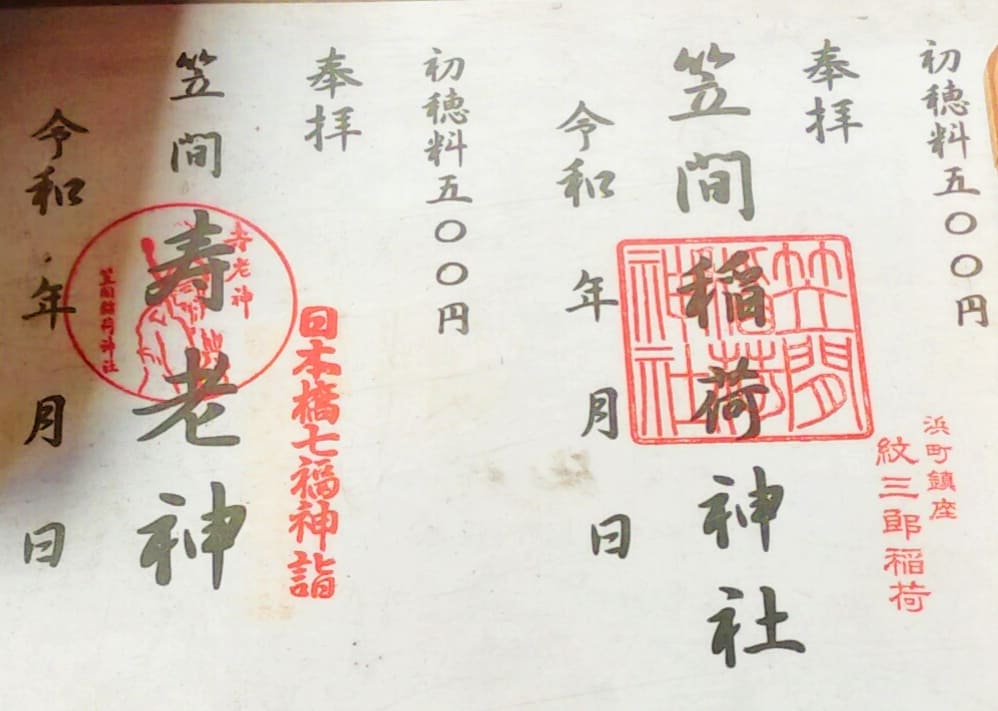 初穂料五〇〇円
奉拝
浜町鎮座
紋三郎稲荷
笠間稲荷神社
笠間稲荷神社
令和 年 月 日
初穂料五〇〇円
奉拝
日本橋七福神詣
笠間寿老神
寿老神
笠間稲荷神社
令和 年 月 日